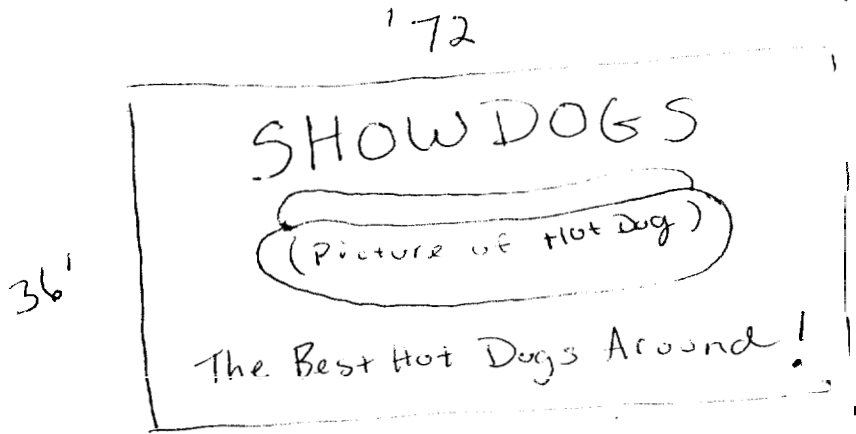 '72
SHOWDOGS
(Picture of Hot Dog)
36'
The Best Hot Dogs Around!